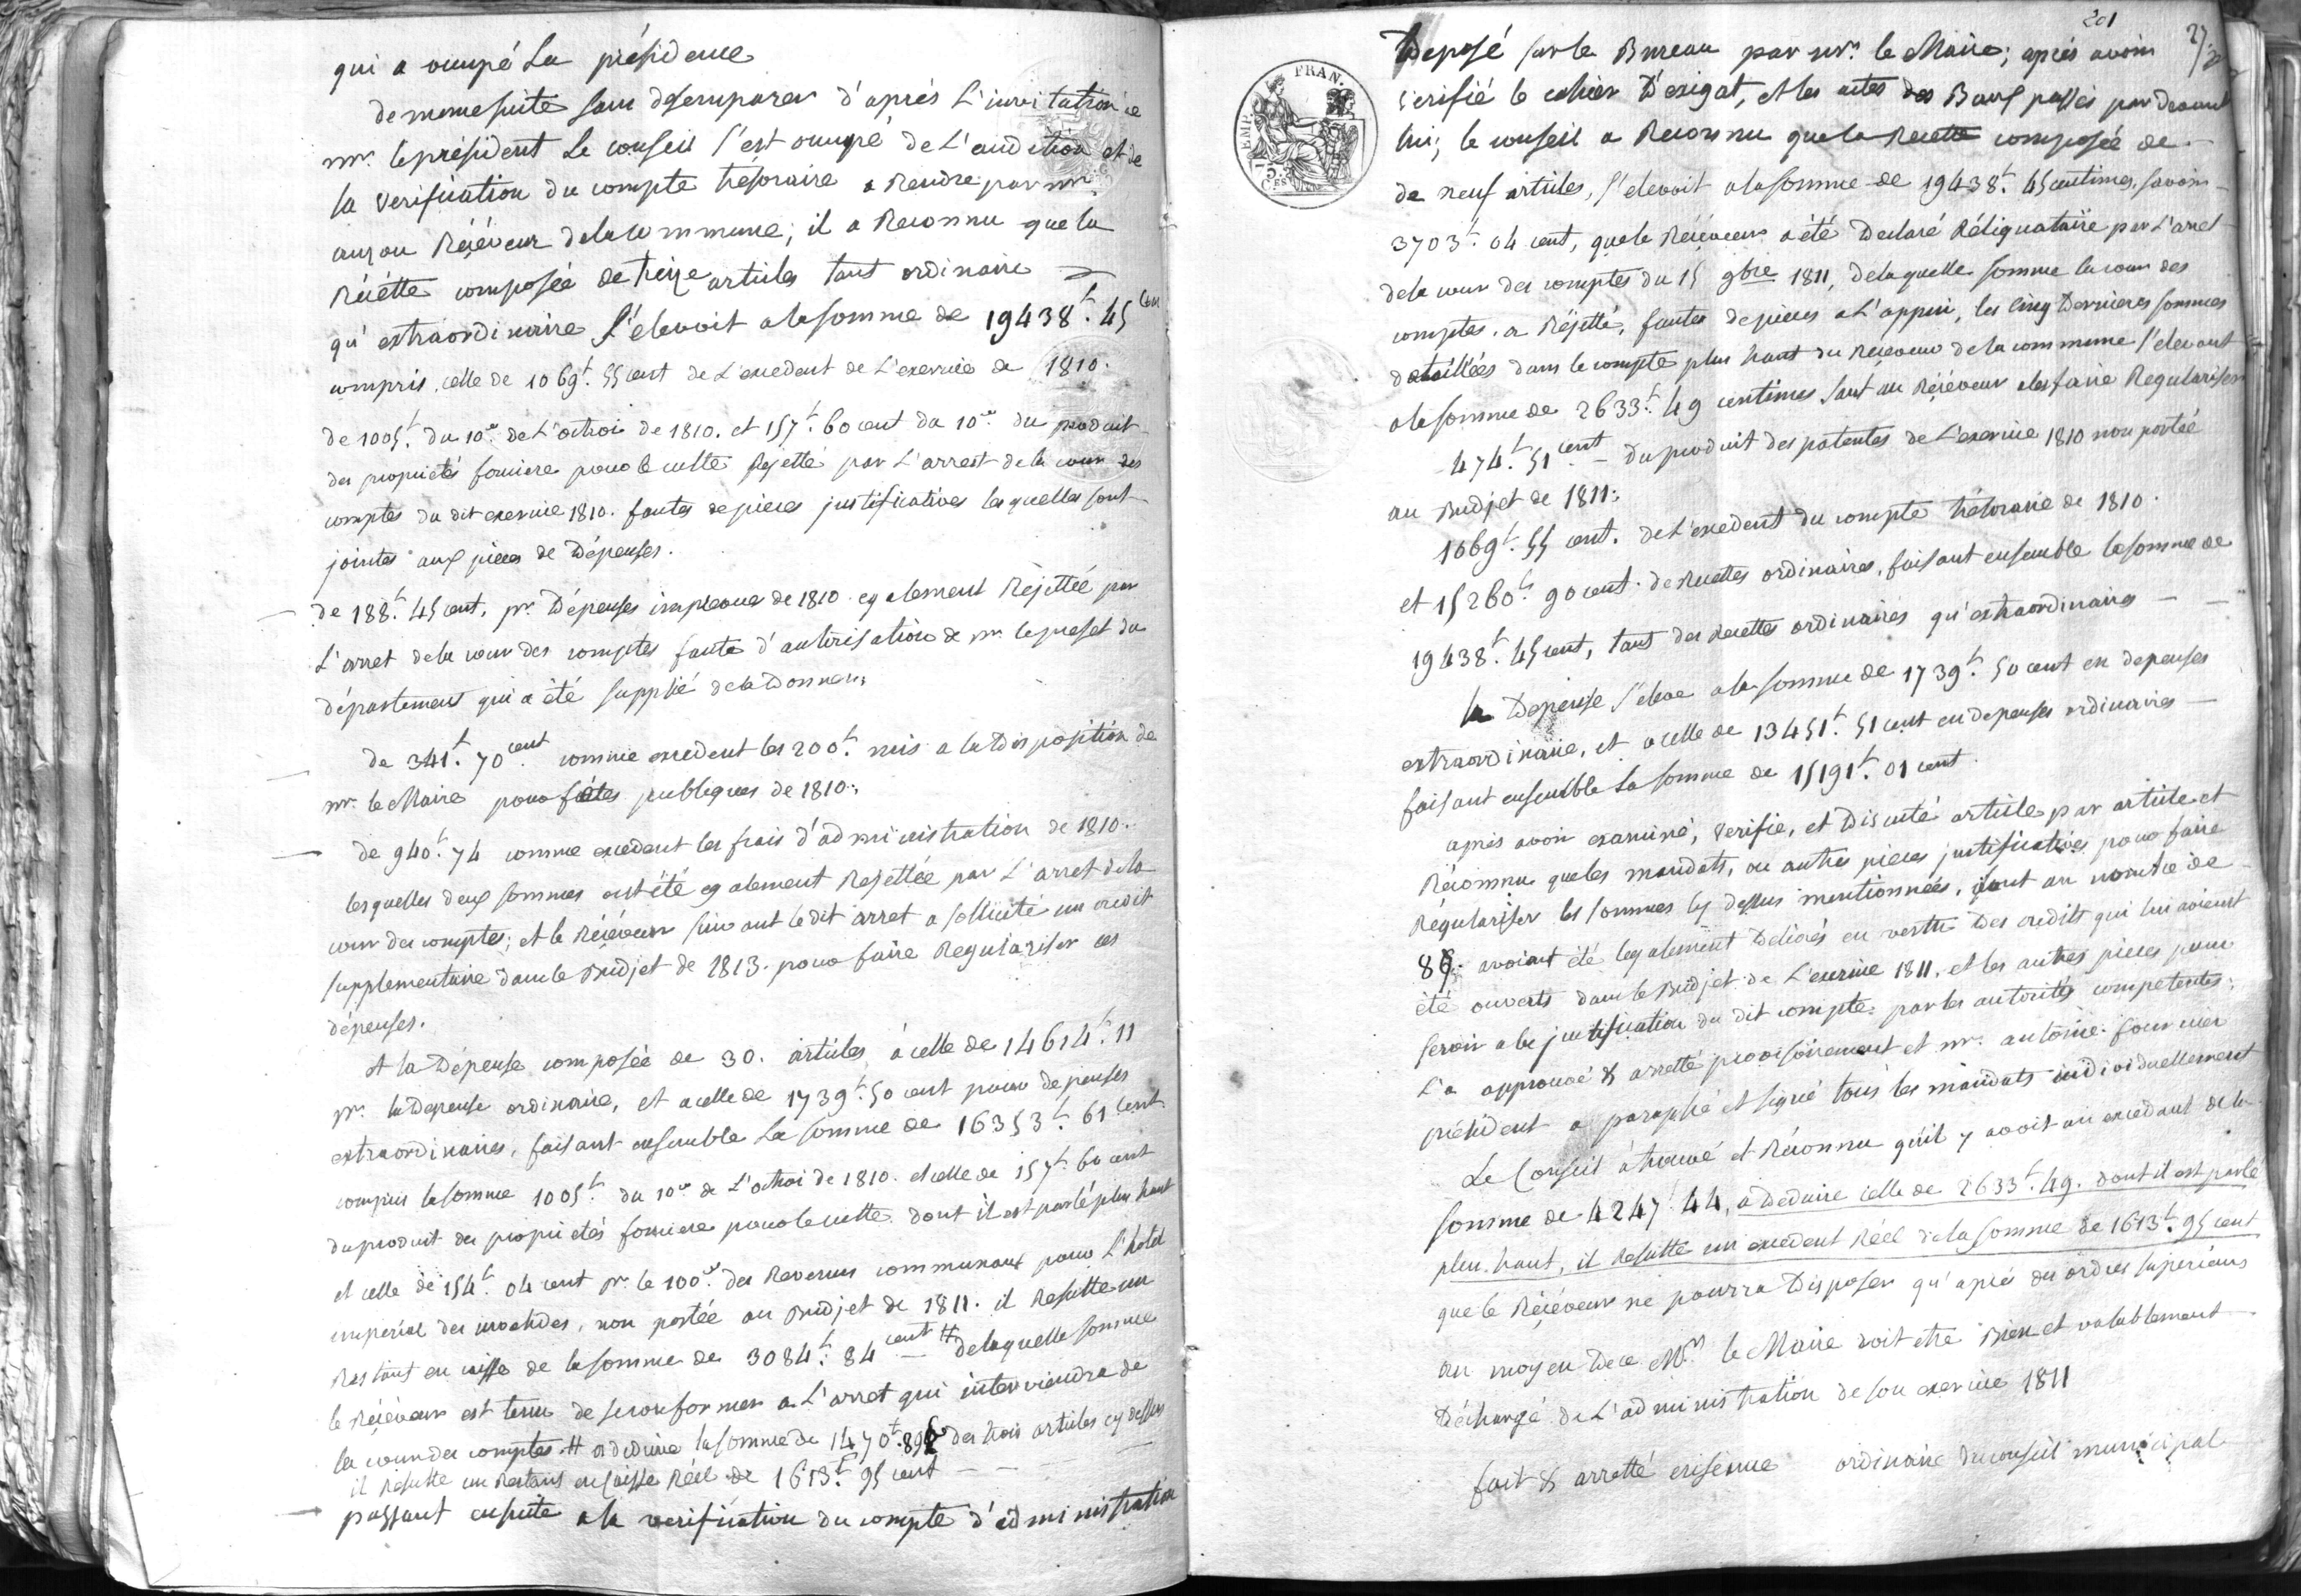 qui a occupé la présidence
de meme suite sans desemparer d'aprés l'invitation de
mr. le président le conseil s'est occupé de l'audition et de
la verification du compte trésoraire a rendre par mr.
auzou Réçéveur de la commune; il a Reconnu que la
Réçétte composée de treize articles tant ordinaire
qu'extraordinaire s'elevoit a la somme de 19438f. 45 cen
compris celle de 1069f. 55 cent de l'excedent de l'exercice de 1810.
de 1005f. du 10e. de l'octroi de 1810. et 157f. 60 cent du 10e. du produit
des propriétés fonciere pour le culte Rejetté par l'arrest de la cour des
comptes du dit exercice 1810. fautes de pieces justificatives lesquelles sont
jointes aux pieces de Dépenses.
de 188f. 45 cent, pr. Dépenses imprevues de 1810 egalement Rejettée par
l'arret de la cour des comptes faute d'autorisation de mr. le prefet du
département qui a été supplié de la Donner;
de 341f. 70 cent comme excedent les 200f. mis a la Disposition de
mr. le Maire pour fêtes publiques de 1810;
de 940f. 74 comme excedent les frais d'administration de 1810.
lesquelles deux sommes ont été egalement Rejettée par l'arret de la
cour des comptes; et le Réçéveur suivant le dit arret a sollicité un credit
supplementaire dans le Budjet de 1813. pour faire Regulariser ces
dépenses.
et la Dépense composée de 30. articles à celle de 14614f. 11
pr. la Depense ordinaire, et a celle de 1739f. 50 cent pour depenses
extraordinaires, faisant ensemble la somme de 16353f. 61 cent
compris la somme 1005f. du 10e de l'octroi de 1810. et celle de 157f. 60 cent
du produit des propriétés fonciere pour le culte dont il est parlé plus haut
et celle de 154f. 04 cent pr. le 100e. des Revenus communaux pour l'hotel
imperial des invalides, non portée au Budjet de 1811. il Resulte un
Restant en caisse de la somme de 3084f. 84 cent # de laquelle somme
le Réçéveur est tenu de se conformer a l'arret qui interviendra de
la cour des comptes # a deduire la somme de 1470f. 89 des trois articles cy dessus
il Resulte un Restant en Caisse Réél de 1613f. 95 cent
passant ensuite a la verification du compte d'administration
201
Deposé sur le Bureau par mr. le Maire; aprés avoir
verifié le cahier D'exigat, et les actes des Baux passés par devant
lui; le conseil a Reconnu que la Recette composée de
de neuf articles, s'elevoit a la somme de 19438f. 45 centimes, savoir
3703f. 04 cent, que le Réçéveur a été Declaré Réliquataire par l'arret
de la cour des comptes du 15 9bre 1811, de laquelle somme la cour des
comptes a Réjetté, fautes de pieces a l'appui, les cinq Dernieres sommes
detaillées dans le compte plus haut du Réçéveur de la commune s'elevant
a la somme de 2633f. 49 centimes sauf au Réçéveur a les faire Regulariser
474f. 51 cent du produit des patentes de l'exercice 1810 non portée
au Budjet de 1811;
1069f. 55 cent. de l'excedent du compte trésoraire de 1810.
et 15260f. 90 cent. de Recettes ordinaires, faisant ensemble la somme de
19438f. 45 cent, tant des Recettes ordinaires qu'extraordinaires
la Depense s'eleve a la somme de 1739f. 50 cent en depenses
extraordinaire, et a celle de 13451f. 51 cent en depenses ordinaires
faisant ensemble la somme de 15191f. 01 cent
aprés avoir examiné, verifié, et Discuté article par article et
Réconnu que les mandats, ou autres pieces justificatives pour faire
Régulariser les sommes cy dessus mentionnées, sont au nombre de
avoient été legalement Delivrés en vertu Des credits qui lui avoient
été ouverts dans le Budjet de l'exercice 1811. et les autres pieces pour
servir a la justification du dit compte par les autorités competentes;
l'a approuvé & arretté provisoirement et mr. antoine fournier
président a paraphé et signé tous les mandats individuellement
Le Conseil a trouvé et Réconnu qu'il y avoit un excedant de la
somme de 4247f 44, a deduire celle de 2633f. 49. dont il est parlé
plus haut, il Resulte un excedent Réél de la somme de 1613f. 95 cent
que le Réçéveur ne pourra Disposer qu'aprés des ordres superieurs
au moyen de ce Mr le Maire doit etre Bien et valablement
Déchargé de l'administration de son exercice 1811
fait & arretté en seance ordinaire du conseil municipal
EMP. FRAN.